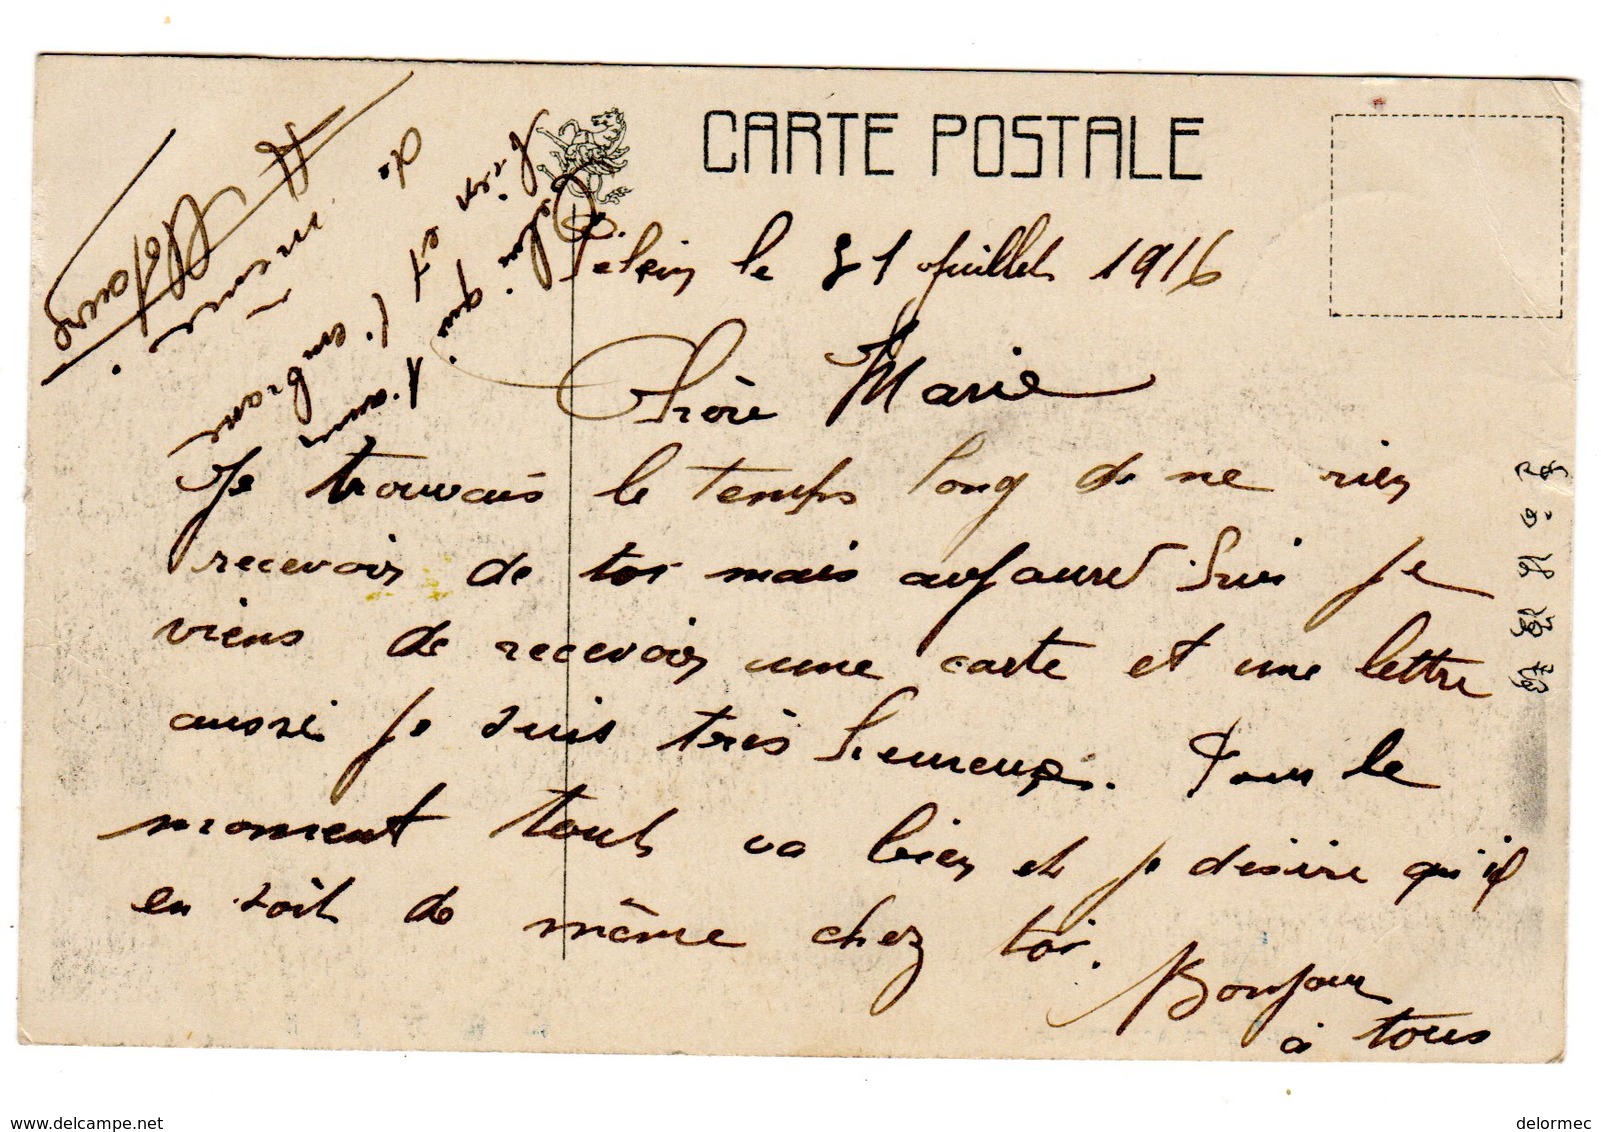 CARTE POSTALE
Pékin le 31 Juillet 1916
Chère Marie
Je trouvais le temps long de ne rien
recevoir de toi mais aujourd'hui je
viens de recevoir une carte et une lettre
aussi je suis très heureux. Pour le
moment tout va bien et je désire qu'il
en soit de même chez toi.
Bonjour
à tous
Celui qui
t'aime
et
l'embrasse
de
delormec